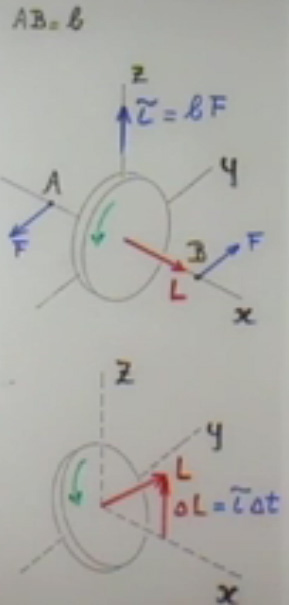 AB = b
z
τ̃ = bF
y
A
F
B
F
L
x
z
y
L
ΔL = τ̃Δt
x